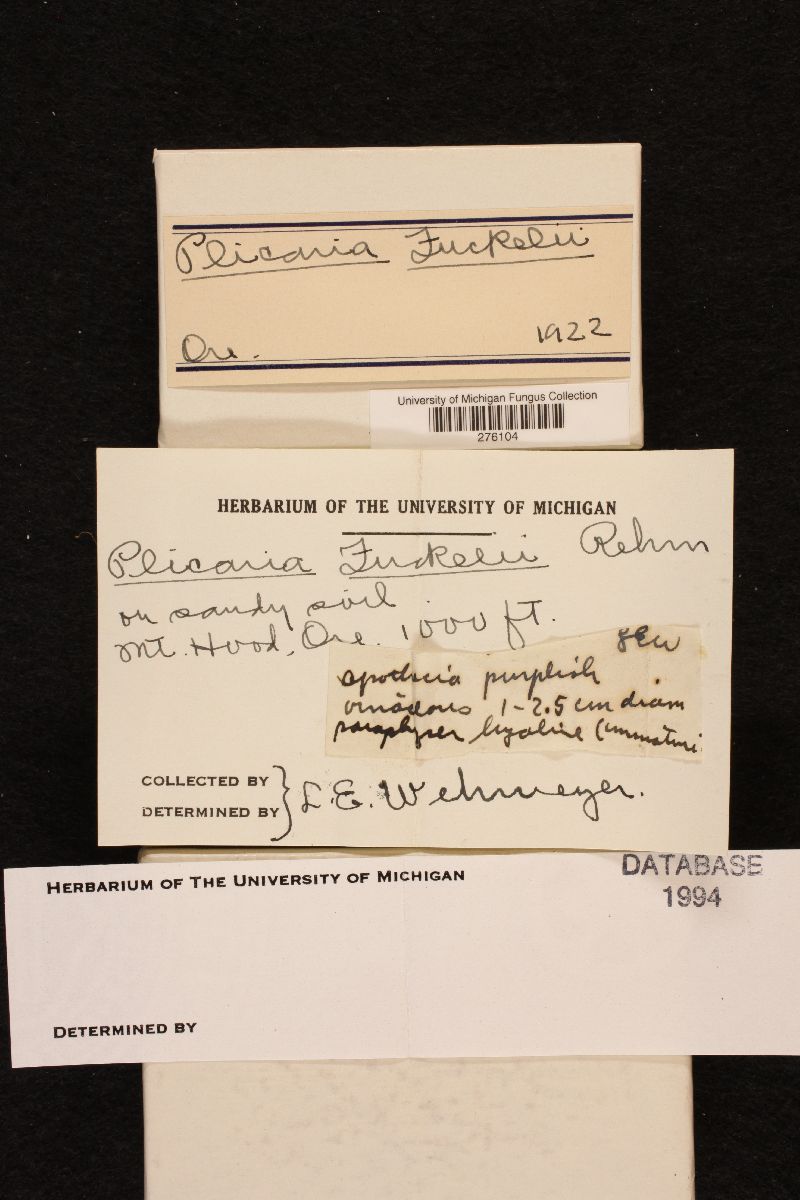 Plicaria Fuckelii
Ore. 1922
University of Michigan Fungus Collection
276104
HERBARIUM OF THE UNIVERSITY OF MICHIGAN
Plicaria Fuckelii Rehm
on sandy soil
Mt. Hood, Ore. 1000 ft.
apothecia purplish
vinaceous 1-2.5 cm diam
paraphyses hyaline
COLLECTED BY
DETERMINED BY
L.E. Wehmeyer.
HERBARIUM OF THE UNIVERSITY OF MICHIGAN
DATABASE
1994
DETERMINED BY